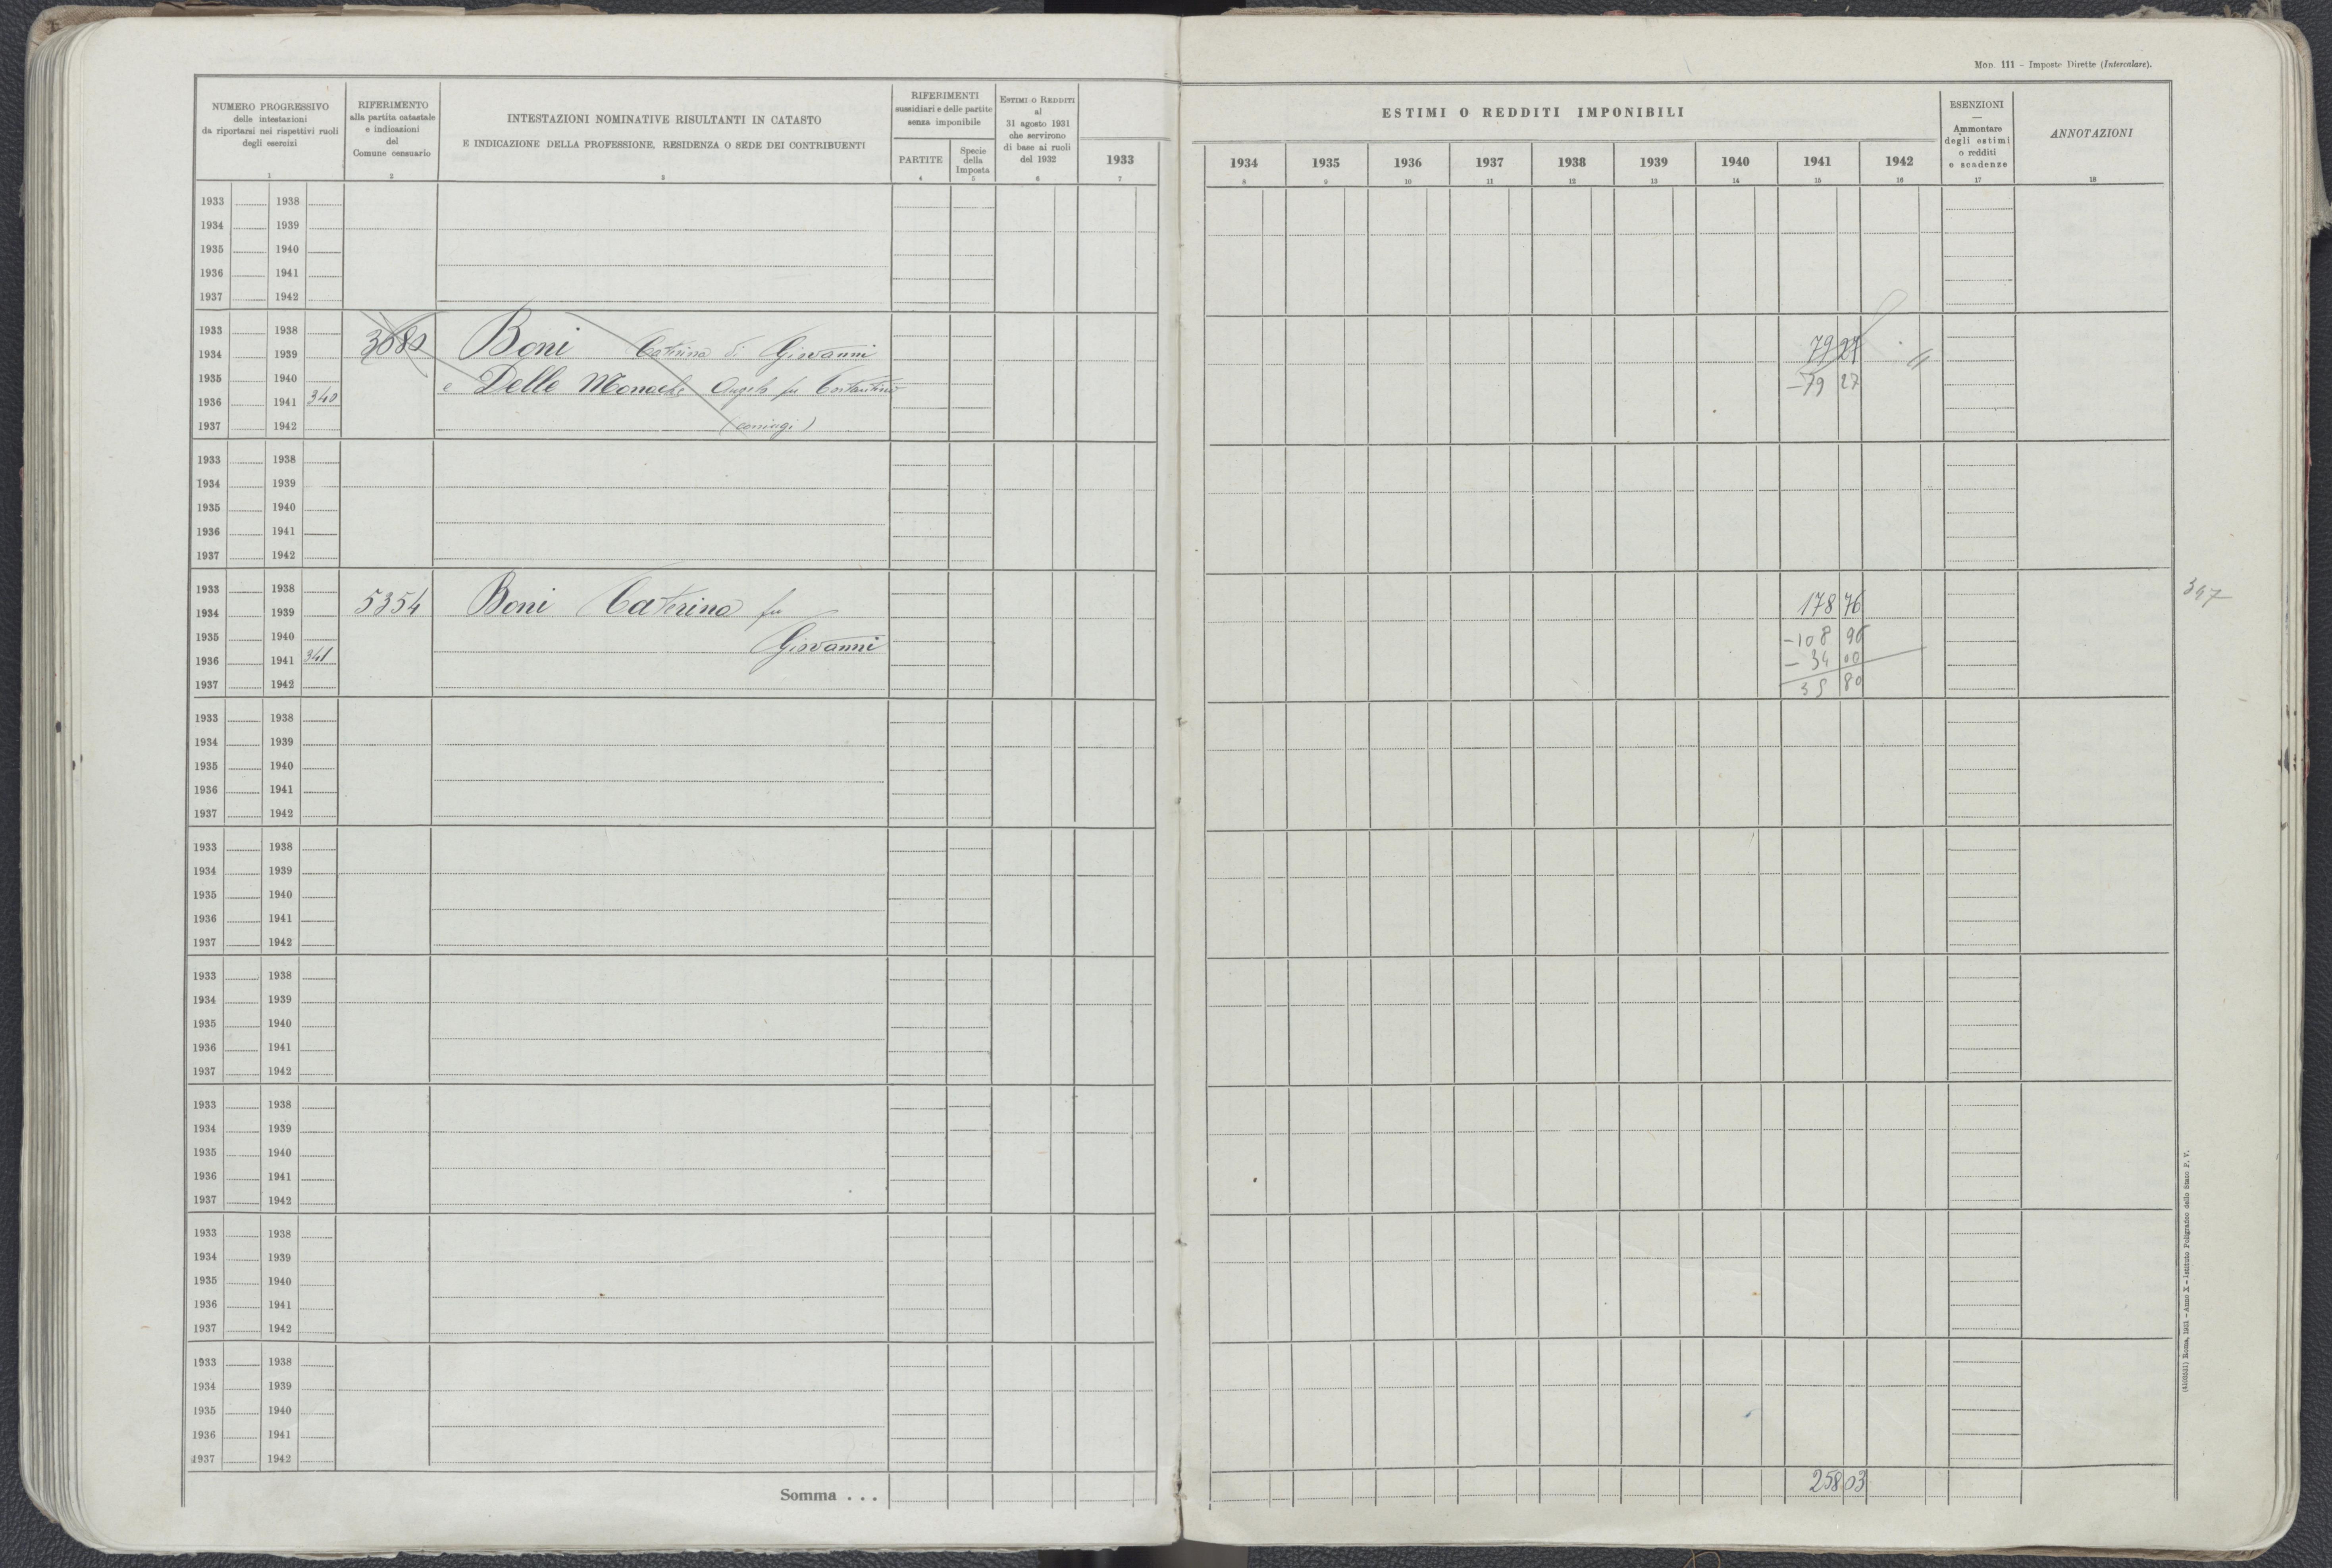 Mod. 111 - Imposte Dirette (Intercalare).
NUMERO PROGRESSIVO
delle intestazioni
da riportarsi nei rispettivi ruoli
degli esercizi
1
RIFERIMENTO
alla partita catastale
e indicazioni
del
Comune censuario
2
INTESTAZIONI NOMINATIVE RISULTANTI IN CATASTO
E INDICAZIONE DELLA PROFESSIONE, RESIDENZA O SEDE DEI CONTRIBUENTI
3
RIFERIMENTI
sussidiari e delle partite
senza imponibile
PARTITE
4
Specie
della
Imposta
5
Estimi o Redditi
al
31 agosto 1931
che servirono
di base ai ruoli
del 1932
6
1933
7
ESTIMI O REDDITI IMPONIBILI
1934 1935 1936 1937 1938 1939 1940 1941 1942
8 9 10 11 12 13 14 15 16
ESENZIONI
—
Ammontare
degli estimi
o redditi
e scadenze
17
ANNOTAZIONI
18
1933 1938
1934 1939
1935 1940
1936 1941
1937 1942
1933 1938
1934 1939 3680 Boni Caterina di Giovanni 79 27
1935 1940 e Delle Monache Angelo fu Costantino -79 27
1936 1941 340
1937 1942 (coniugi)
1933 1938
1934 1939
1935 1940
1936 1941
1937 1942
1933 1938 397
1934 1939 5354 Boni Caterina fu 178 76
1935 1940 Giovanni -108 96
1936 1941 341 -34 00
1937 1942 35 80
1933 1938
1934 1939
1935 1940
1936 1941
1937 1942
1933 1938
1934 1939
1935 1940
1936 1941
1937 1942
1933 1938
1934 1939
1935 1940
1936 1941
1937 1942
1933 1938
1934 1939
1935 1940
1936 1941
1937 1942
1933 1938
1934 1939
1935 1940
1936 1941
1937 1942
1933 1938
1934 1939
1935 1940
1936 1941
1937 1942
Somma . . . 258 03
Roma, 1931 - Anno X - Istituto Poligrafico dello Stato P. V.